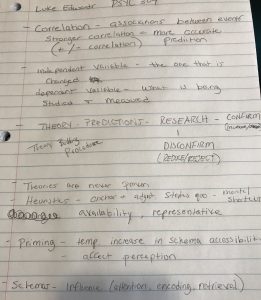 Luke Edwards PSYC 304
- Correlation - associations between events
Stronger correlation = more accurate
(+/- correlation) Prediction
- independent variable - the one that is
changed
dependent variable - what is being
studied + measured
- THEORY - PREDICTIONS - RESEARCH - CONFIRM
Theory Building
Procedure
DISCONFIRM
- Theories are never proven
- Heuristics - anchor + adjust, status quo - mental
shortcuts
availability, representative
- Priming - temp. increase in schema accessibility
- affect perception
- Schemas - influence (attention, encoding, retrieval)